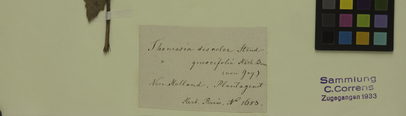 Thomasia discolor Steud
" quercifolia Hort. Ber
(non Gay)
Nov. Holland. Plantagenet
Herb. Preiss. Nº 1653.
Sammlung
C. Correns
Zugegangen 1933